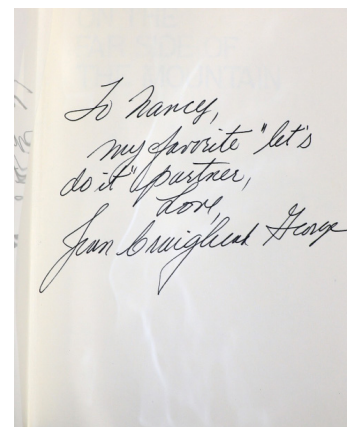 To Nancy,
my favorite "let's
do it" partner,
Love,
Jean Craighead George